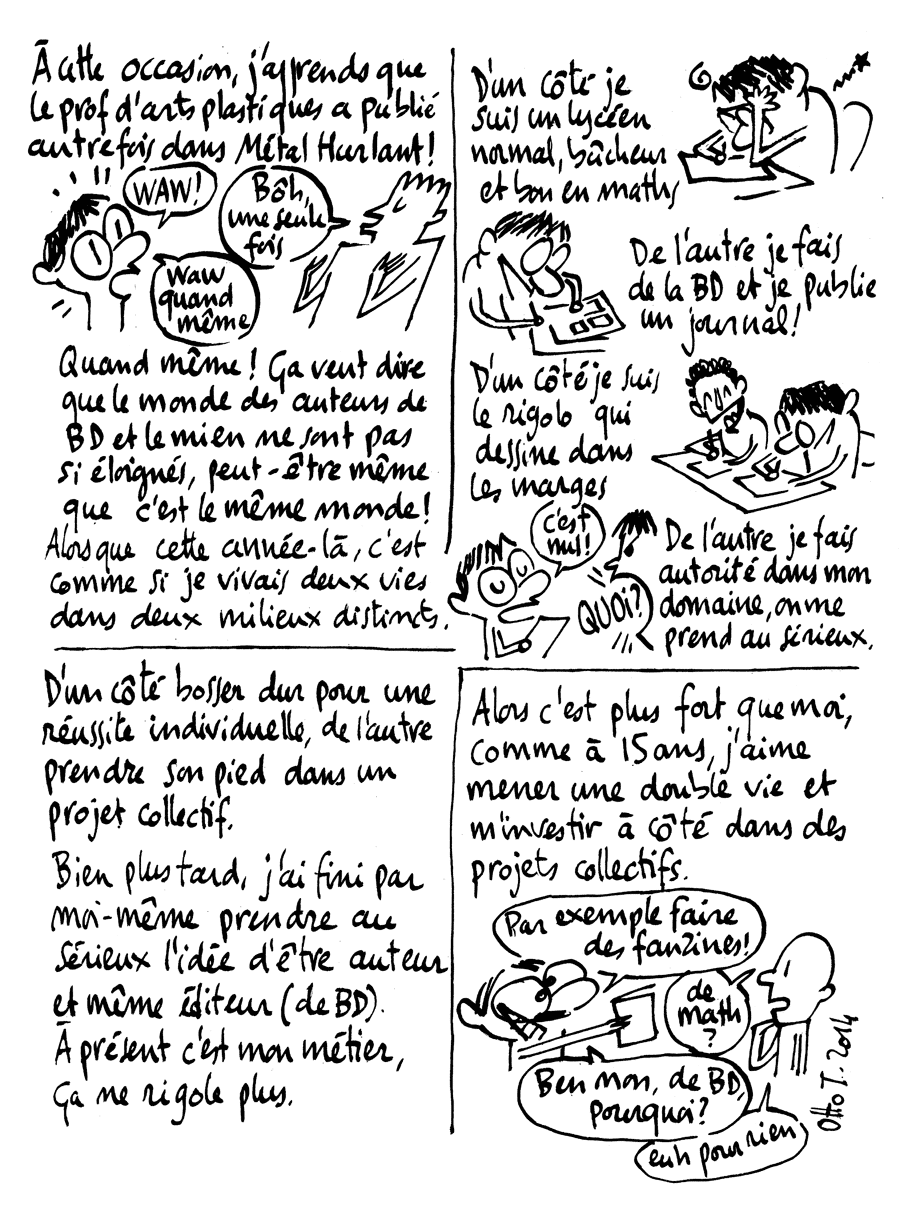 À cette occasion, j'apprends que
le prof d'arts plastiques a publié
autrefois dans Métal Hurlant!
WAW!
Bôh,
une seule
fois
Waw
quand
même
Quand même! Ça veut dire
que le monde des auteurs de
BD et le mien ne sont pas
si éloignés, peut-être même
que c'est le même monde!
Alors que cette année-là, c'est
comme si je vivais deux vies
dans deux milieux distincts.
D'un côté je
suis un lycéen
normal, bâcheur
et bon en maths
De l'autre je fais
de la BD et je publie
un journal!
D'un côté je suis
le rigolo qui
dessine dans
les marges
c'est
nul!
QUOI?
De l'autre je fais
autorité dans mon
domaine, on me
prend au sérieux.
D'un côté bosser dur pour une
réussite individuelle, de l'autre
prendre son pied dans un
projet collectif.
Bien plus tard, j'ai fini par
moi-même prendre au
sérieux l'idée d'être auteur
et même éditeur (de BD).
À présent c'est mon métier,
Ça ne rigole plus.
Alors c'est plus fort que moi,
comme à 15 ans, j'aime
mener une double vie et
m'investir à côté dans des
projets collectifs.
Par exemple faire
des fanzines!
de
math
?
Ben non, de BD,
pourquoi?
euh pour rien
Otto T. 2014